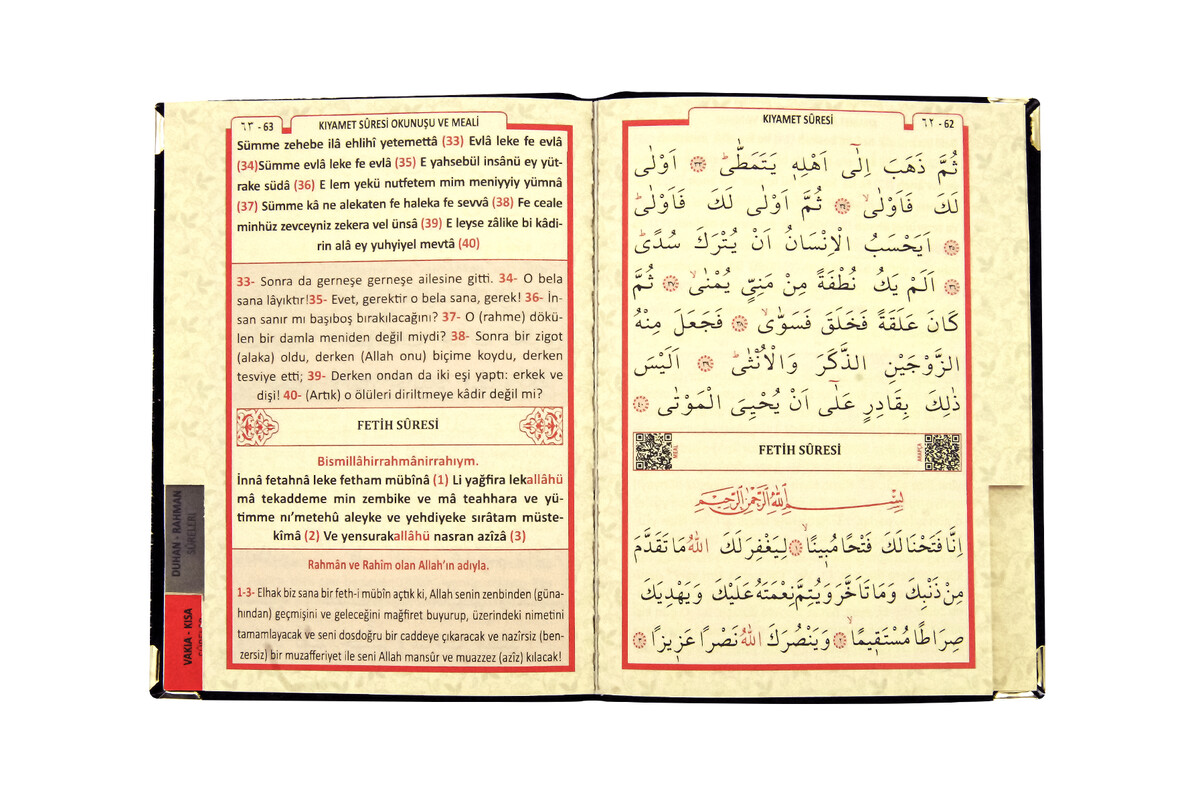 ٦٢ - 62
KIYAMET SÛRESİ
ثُمَّ ذَهَبَ اِلٰٓى اَهْلِه۪ يَتَمَطّٰىۜ ﴿٣٣﴾ اَوْلٰى
لَكَ فَاَوْلٰىۙ ﴿٣٤﴾ ثُمَّ اَوْلٰى لَكَ فَاَوْلٰىۜ
﴿٣٥﴾ اَيَحْسَبُ الْاِنْسَانُ اَنْ يُتْرَكَ سُدًىۜ
﴿٣٦﴾ اَلَمْ يَكُ نُطْفَةً مِنْ مَنِيٍّ يُمْنٰىۙ ﴿٣٧﴾ ثُمَّ
كَانَ عَلَقَةً فَخَلَقَ فَسَوّٰىۙ ﴿٣٨﴾ فَجَعَلَ مِنْهُ
الزَّوْجَيْنِ الذَّكَرَ وَالْاُنْثٰىۜ ﴿٣٩﴾ اَلَيْسَ
ذٰلِكَ بِقَادِرٍ عَلٰٓى اَنْ يُحْيِيَ الْمَوْتٰى ﴿٤٠﴾
ARAPÇA
FETİH SÛRESİ
MEAL
بِسْمِ اللّٰهِ الرَّحْمٰنِ الرَّحِيمِ
اِنَّا فَتَحْنَا لَكَ فَتْحًا مُب۪ينًاۙ ﴿١﴾ لِيَغْفِرَ لَكَ اللّٰهُ مَا تَقَدَّمَ
مِنْ ذَنْبِكَ وَمَا تَاَخَّرَ وَيُتِمَّ نِعْمَتَهُ عَلَيْكَ وَيَهْدِيَكَ
صِرَاطًا مُسْتَق۪يمًاۙ ﴿٢﴾ وَيَنْصُرَكَ اللّٰهُ نَصْرًا عَز۪يزًا ﴿٣﴾
٦٣ - 63
KIYAMET SÛRESİ OKUNUŞU VE MEALİ
Sümme zehebe ilâ ehlihî yetemettâ (33) Evlâ leke fe evlâ
(34)Sümme evlâ leke fe evlâ (35) E yahsebül insânü ey yüt-
rake südâ (36) E lem yekü nutfetem mim meniyyiy yümnâ
(37) Sümme kâ ne alekaten fe haleka fe sevvâ (38) Fe ceale
minhüz zevceyniz zekera vel ünsâ (39) E leyse zâlike bi kâdi-
rin alâ ey yuhyiyel mevtâ (40)
33- Sonra da gerneşe gerneşe ailesine gitti. 34- O bela
sana lâyıktır!35- Evet, gerektir o bela sana, gerek! 36- İn-
san sanır mı başıboş bırakılacağını? 37- O (rahme) dökü-
len bir damla meniden değil miydi? 38- Sonra bir zigot
(alaka) oldu, derken (Allah onu) biçime koydu, derken
tesviye etti; 39- Derken ondan da iki eşi yaptı: erkek ve
dişi! 40- (Artık) o ölüleri diriltmeye kâdir değil mi?
FETİH SÛRESİ
Bismillâhirrahmânirrahıym.
İnnâ fetahnâ leke fetham mübînâ (1) Li yağfira lekallâhü
mâ tekaddeme min zembike ve mâ teahhara ve yü-
timme nı'metehû aleyke ve yehdiyeke sırâtam müste-
kîmâ (2) Ve yensurakallâhü nasran azîzâ (3)
Rahmân ve Rahîm olan Allah'ın adıyla.
1-3- Elhak biz sana bir feth-i mübîn açtık ki, Allah senin zenbinden (güna-
hından) geçmişini ve geleceğini mağfiret buyurup, üzerindeki nimetini
tamamlayacak ve seni dosdoğru bir caddeye çıkaracak ve nazîrsiz (ben-
zersiz) bir muzafferiyet ile seni Allah mansûr ve muazzez (azîz) kılacak!
DUHAN - RAHMAN
SÛRELERİ
VAKIA - KISA